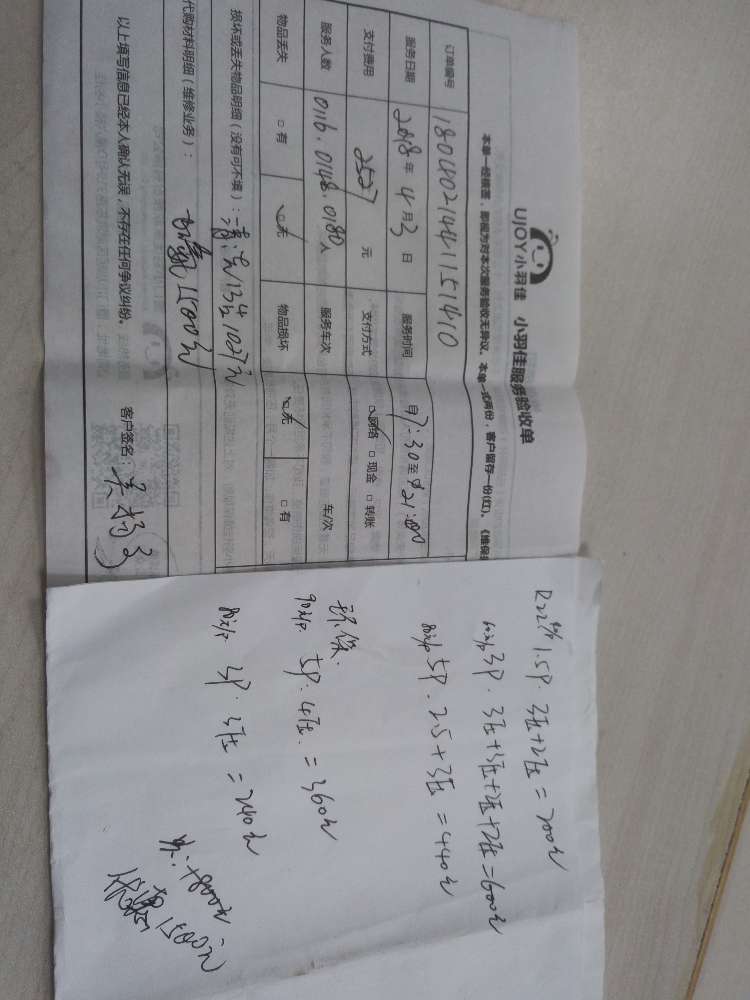 UJOY小羽佳 小羽佳服务验收单
本单一经核签,即视为对本次服务验收无异议。本单一式两份,客户留存一份(红)。《维保
订单编号 180402144111151410
服务日期 2018年4月3日 服务时间 自7:30至21:00
支付费用 2527元 支付方式 网络 □现金 □转账
服务人数 0116.0148.0180人 服务车次 车/次
物品丢失 □有 无 物品损坏 无 □有
损坏或丢失物品明细(没有可不填):清洗13台1027元
代购材料明细(维修业务):
加氟1500元
以上填写信息已经本人确认无误,不存在任何争议纠纷。 客户签名:
R22 1.5P·3压+2压=200元
60元/p 3P·3压+3压+2压+2压=600元
80元/p 5P·2.5+3压=440元
环保.
90元/p 5P·4压.=360元
80元/p 3P·3压=240元
共:1800元
优惠 1500元